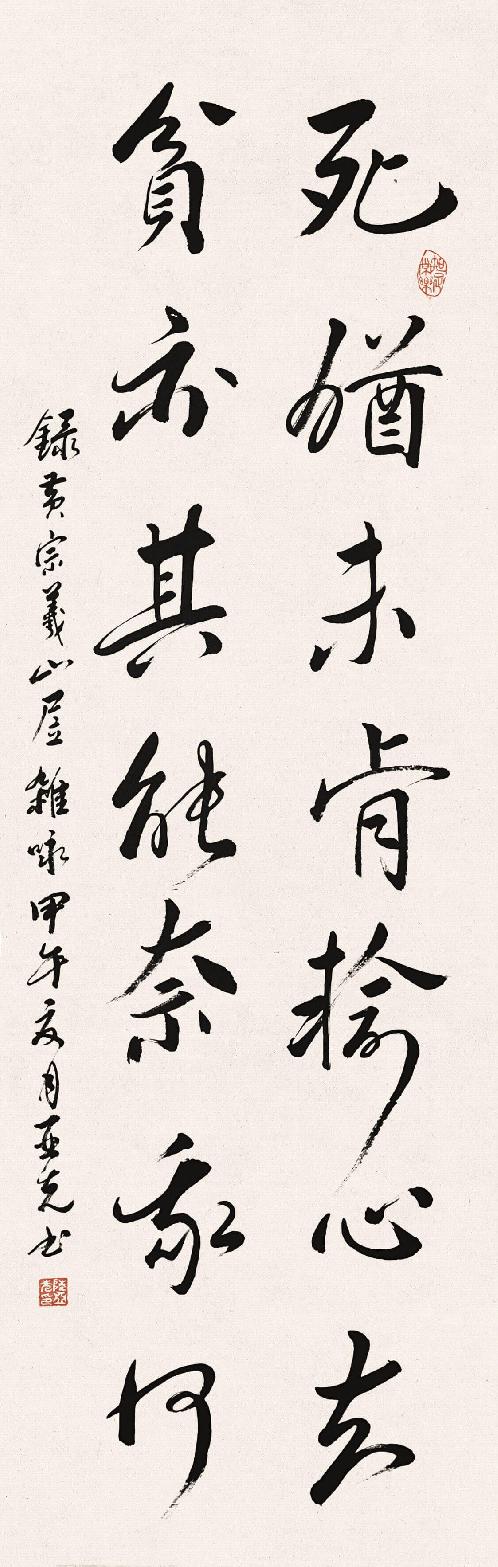 死猶未肯輸心去
貧亦其能奈我何
録黄宗羲山居雜咏甲午夏月亚克书